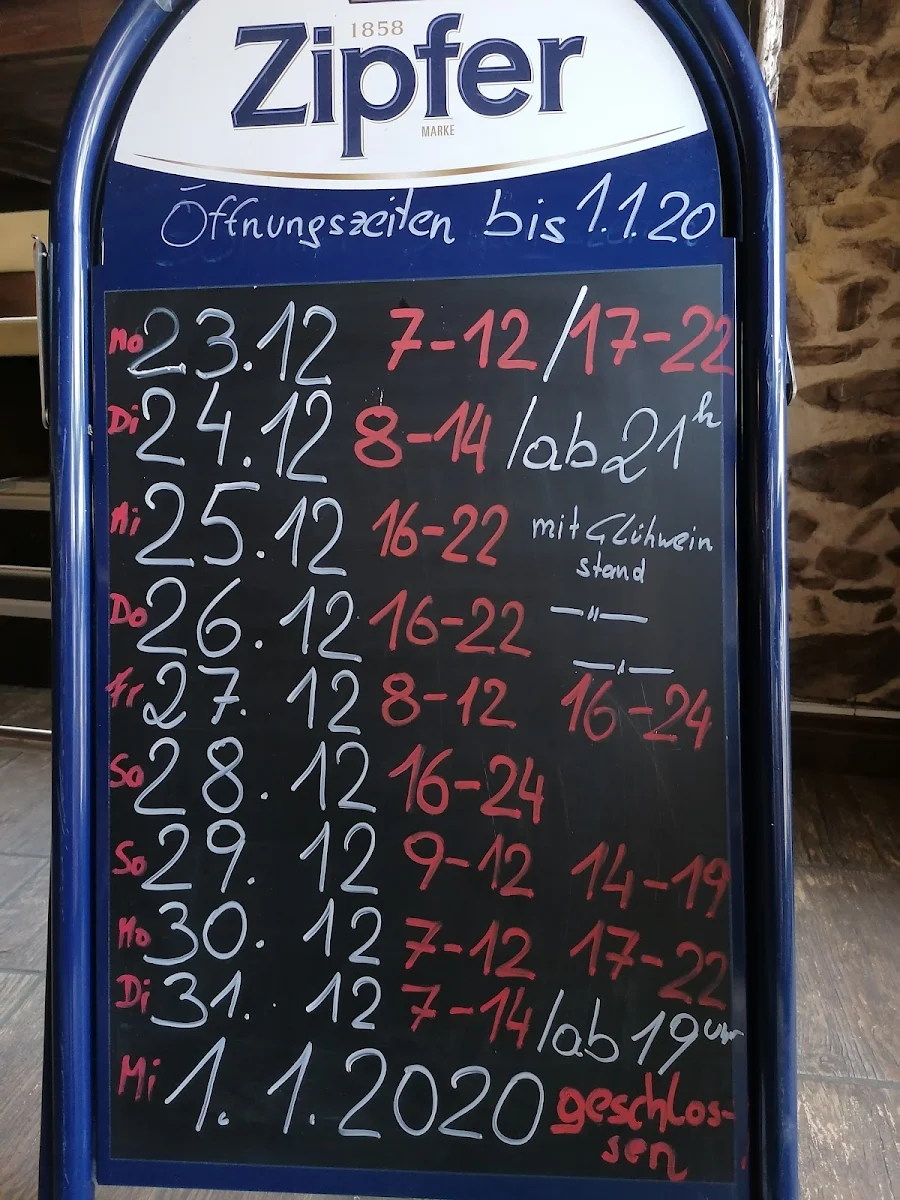 1858
Zipfer
MARKE
Öffnungszeiten bis 1.1.20
Mo 23.12 7-12 / 17-22
Di 24.12 8-14 / ab 21h
Mi 25.12 16-22 mit Glühwein
stand
Do 26.12 16-22 —"—
—"—
Fr 27.12 8-12 16-24
So 28.12 16-24
So 29.12 9-12 14-19
Mo 30.12 7-12 17-22
Di 31.12 7-14 / ab 19 Uhr
Mi 1.1.2020 geschlos-
sen